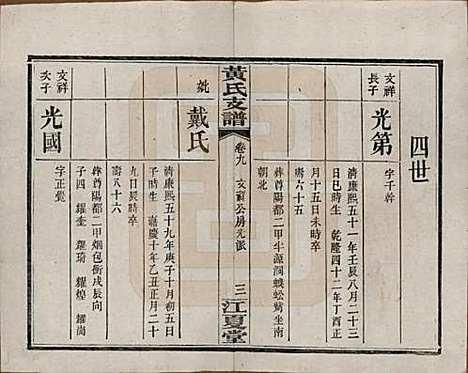 四世
文祥
長子
光第
字千幹
清康熙五十一年壬辰八月二十三
巳時生 乾隆四十二年丁酉正
月十五日未時卒
壽六十五
葬尊陽都二甲牛源洞蜈蚣嶺坐南
朝北
黃氏支譜
卷九 文祥公房光派
三
江夏堂
妣
戴氏
清康熙五十九年庚子十月初五日
子時生 嘉慶十年乙丑正月二十
九日戌時卒
壽八十六
葬尊陽都二甲烟包衝戌辰向
子四 耀奎 耀琦 耀煌 耀崗
文祥
次子
光國
字正覺